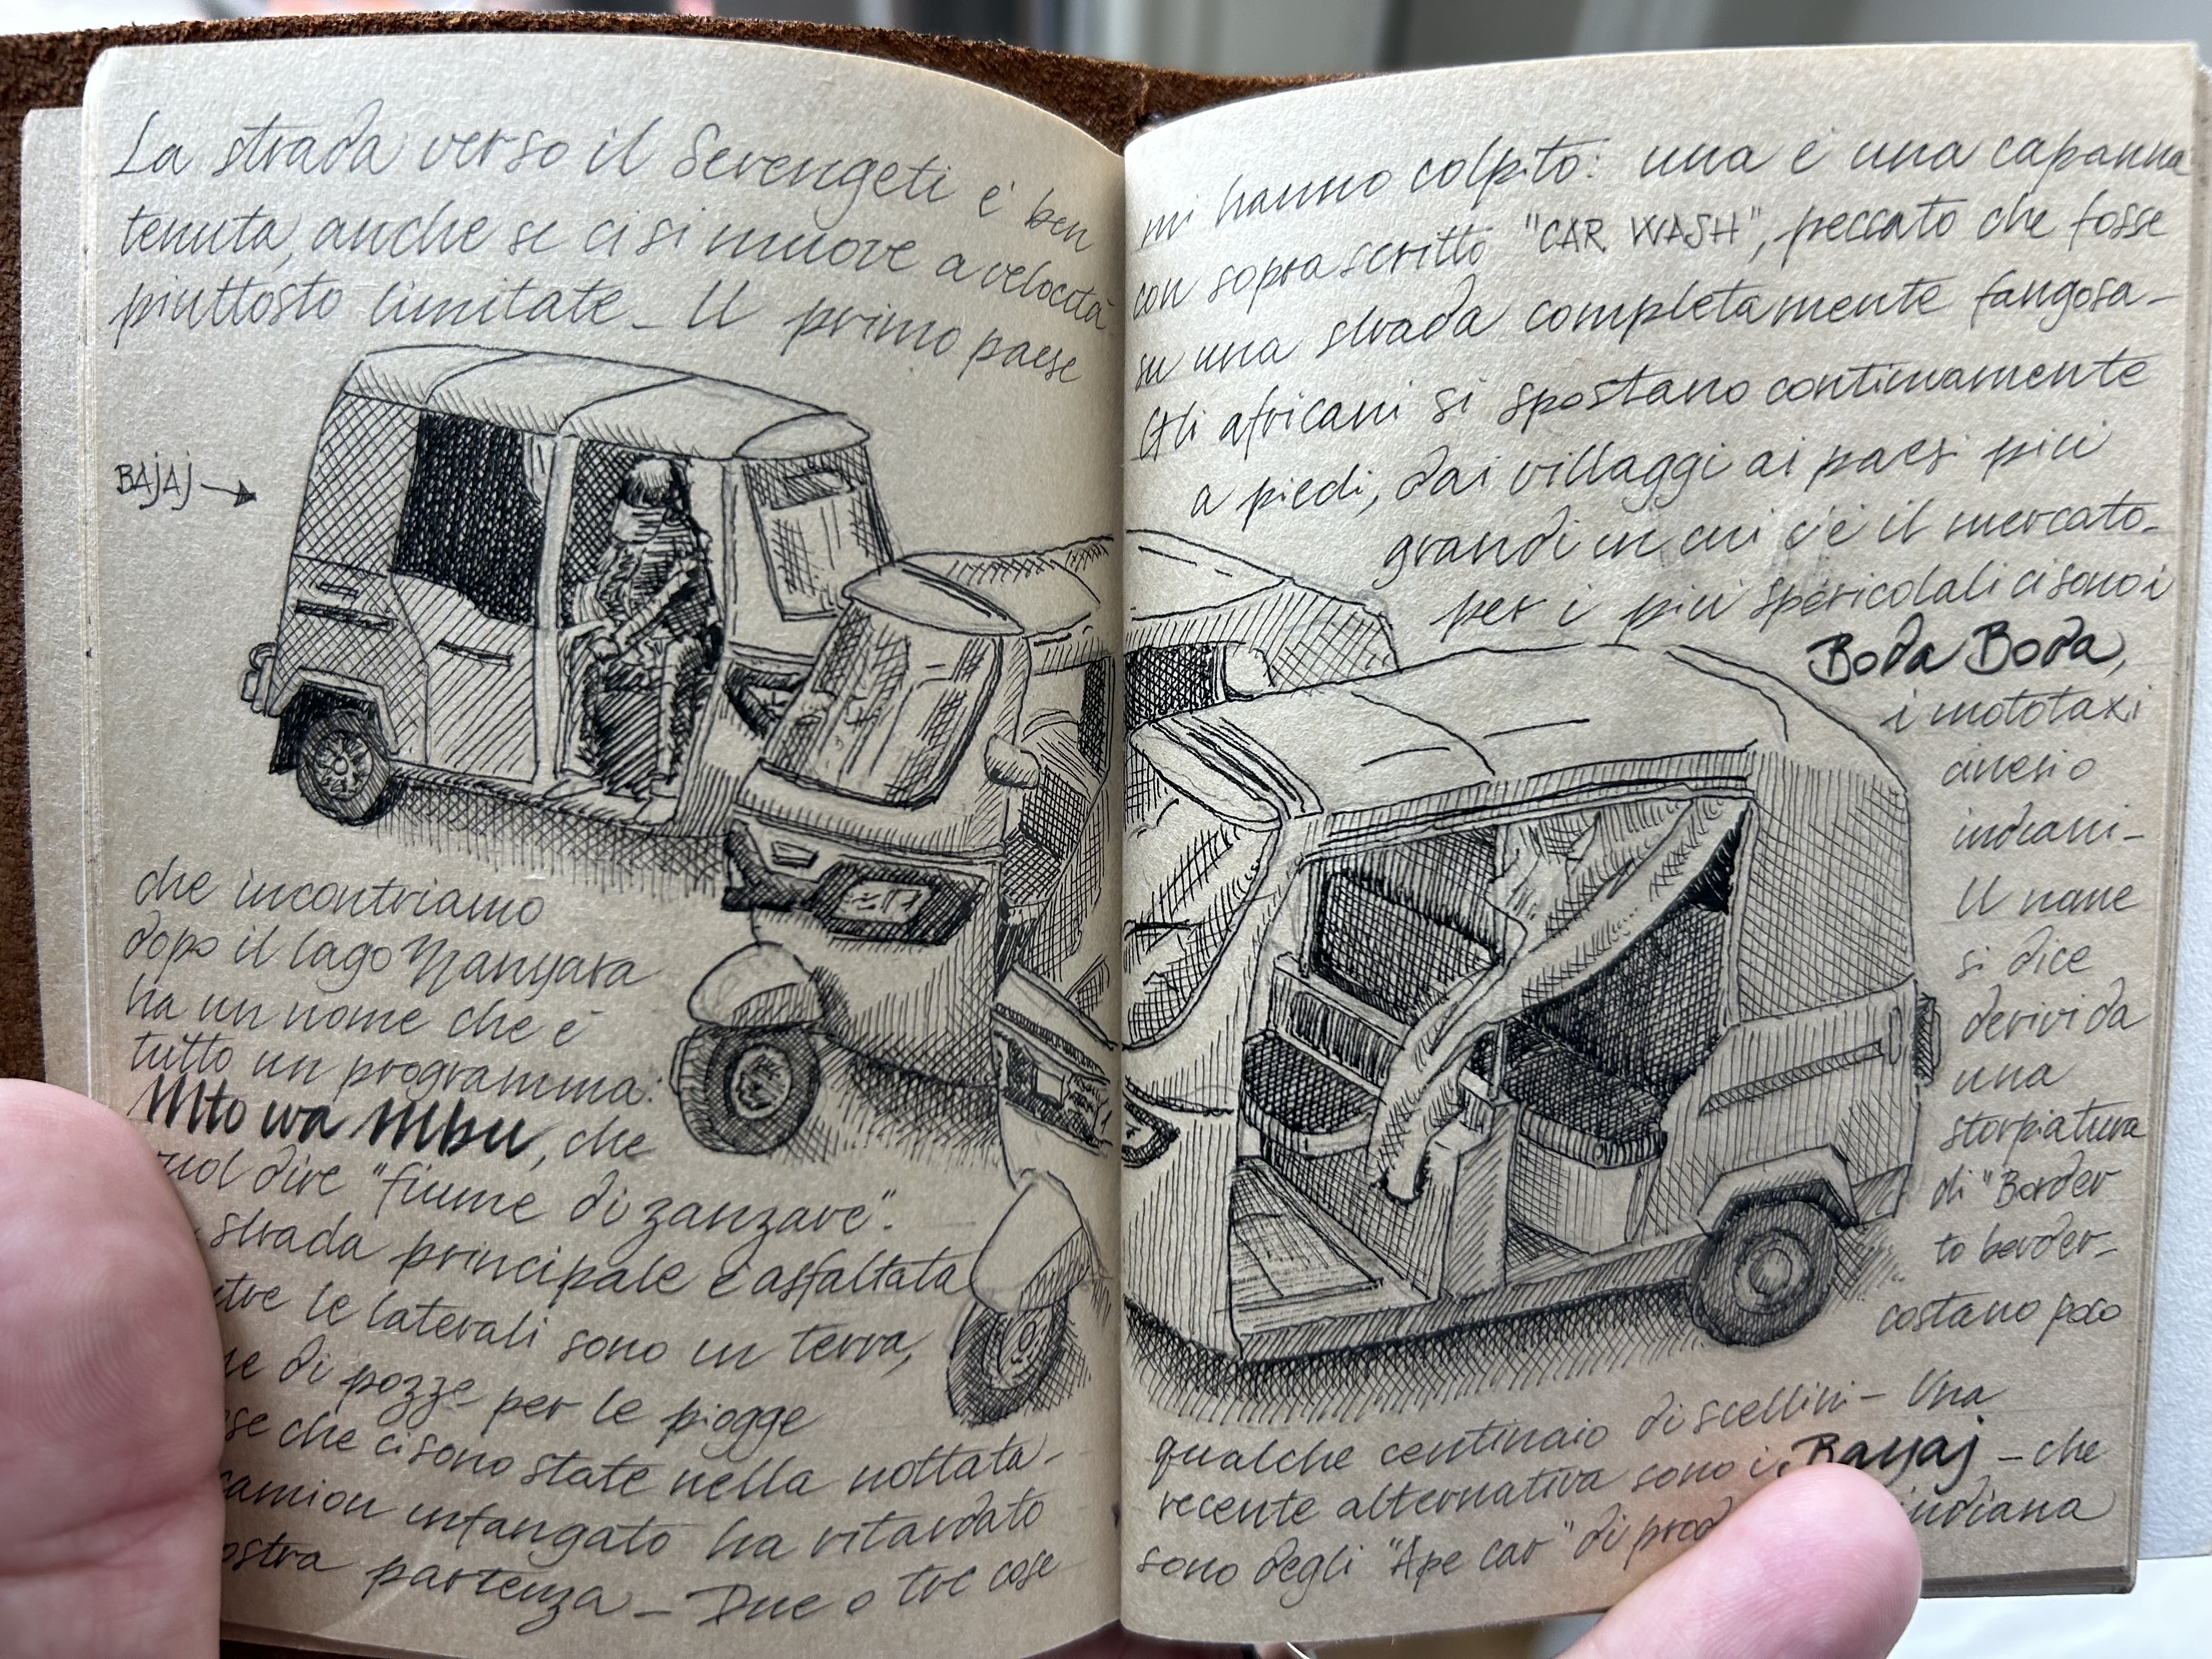 La strada verso il Serengeti è ben
tenuta, anche se ci si muove a velocità
piuttosto limitate_ Il primo paese
BAJAJ
che incontriamo
dopo il lago Manyara
ha un nome che è
tutto un programma:
Mto wa Mbu, che
vuol dire "fiume di zanzare".
strada principale è asfaltata
le laterali sono in terra,
di pozze per le piogge
che ci sono state nella nottata_
camion infangato ha ritardato
partenza_ Due o tre cose
mi hanno colpito: una è una capanna
con sopra scritto "CAR WASH", peccato che fosse
su una strada completamente fangosa_
Gli africani si spostano continuamente
a piedi, dai villaggi ai paesi più
grandi in cui c'è il mercato_
per i più spericolati ci sono i
Boda Boda,
i mototaxi
cinesi o
indiani_
Il nome
si dice
derivi da
una
storpiatura
di "Border
to border_
costano poco
qualche centinaio di scellini_ Una
recente alternativa sono i Bajaj _ che
sono degli "Ape car" di indiana